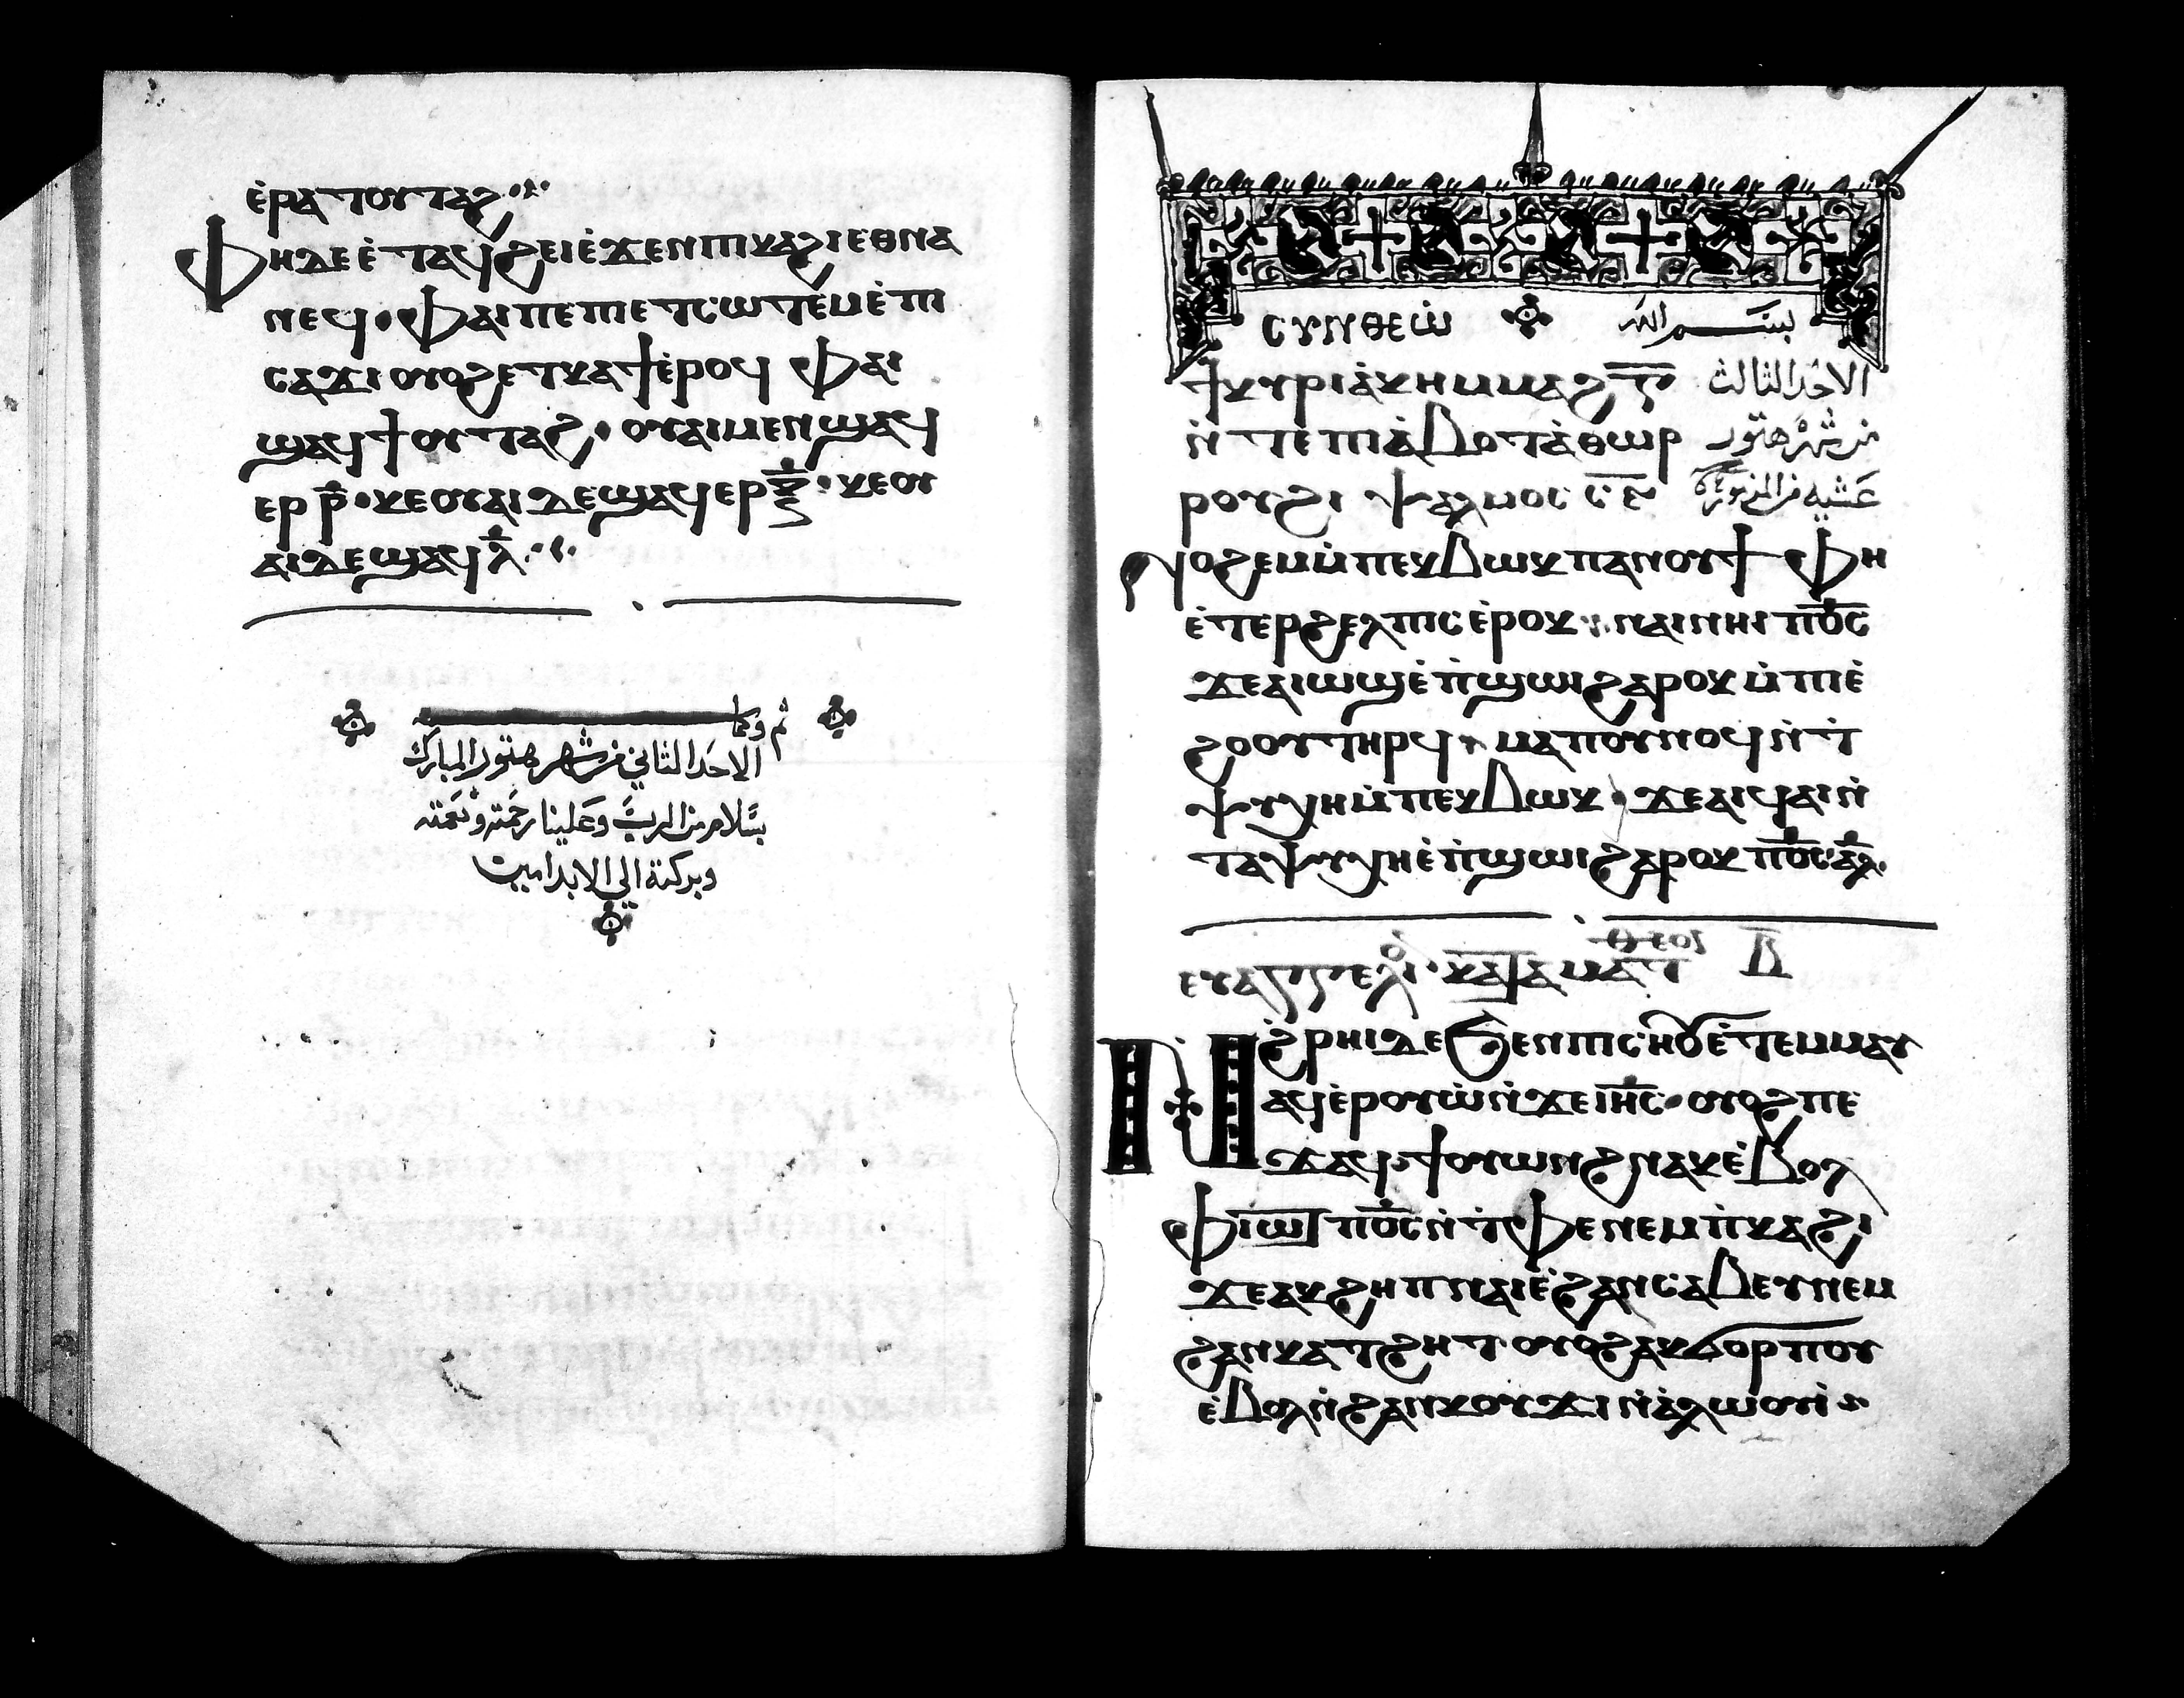 ⲉ̀ⲣⲁⲧⲟⲩⲧⲁϩ
Ⲫⲏⲇⲉⲉ̀ⲧⲁϥϩⲉⲓⲉ̀ϫⲉⲛⲡⲓⲕⲁϩⲓⲉⲑⲛⲁ
ⲛⲉϥ· ⲫⲁⲓⲡⲉⲡⲉⲧⲥⲱⲧⲉⲙⲉ̀ⲡⲓ
ⲥⲁϫⲓ ⲟⲩⲟϩⲉⲧⲕⲁϯⲉ̀ⲣⲟϥ ⲫⲁⲓ
ϣⲁϥϯⲟⲩⲧⲁϩ· ⲟⲩⲁⲓⲙⲉⲛϣⲁϥ
ⲉⲣ ⲣ̅· ⲕⲉⲟⲩⲁⲓ ⲇⲉϣⲁϥⲉⲣⲝ̅· ⲕⲉⲟⲩ
ⲁⲓⲇⲉϣⲁϥⲗ̅
تم وكمل
الاحد الثاني من شهر هتور المبارك
بسلام من الرب وعلينا رحمته ونعمته
وبركته الي الابد امين
ⲥⲩⲛⲑⲉⲱ̀ بسم الله
ϯⲕⲩⲣⲓⲁ̀ⲕⲏⲙⲙⲁϩⲅ̅ الاحد الثالث
ⲛ̀ⲧⲉⲡⲓⲁ̀ⲃⲟⲧⲁ̀ⲑⲱⲣ من شهر هتور
ⲣⲟⲩϩⲓ ⲯⲁⲗⲙⲟⲥ عشية من المزمور
ⲛⲟϩⲉⲙⲙ̀ⲡⲉⲕⲃⲱⲕⲡⲁⲛⲟⲩϯ ⲫⲏ
ⲉ̀ⲧⲉⲣϩⲉⲗⲡⲓⲥⲉ̀ⲣⲟⲕ· ⲛⲁⲓⲛⲏⲓ ⲡⲟ̅ⲥ̅
ϫⲉⲁⲓⲱϣⲉ̀ⲡ̀ϣⲱⲓϩⲁⲣⲟⲕ ⲙ̀ⲡⲓⲉ̀
ϩⲟⲟⲩⲧⲏⲣϥ· ⲙⲁⲡⲟⲩⲛⲟϥⲛ̀ⲧ̀
ⲯⲩⲭⲏⲙ̀ⲡⲉⲕⲃⲱⲕ· ϫⲉⲁⲓϥⲁⲓⲛ̀
ⲧⲁⲯⲩⲭⲏⲉ̀ⲡ̀ϣⲱⲓϩⲁⲣⲟⲕ ⲡⲟ̅ⲥ̅·ⲁ̅ⲗ̅
ⲉⲩⲁⲅⲅⲉⲗⲓⲟ· ⲕⲁⲧⲁ ⲙⲁⲧⲑⲉⲟⲥ
Ⲛϩ̀ⲣⲏⲓⲇⲉϧⲉⲛⲡⲓⲥⲏⲟⲩⲉ̀ⲧⲉⲙⲙⲁⲩ
ⲁϥⲉ̀ⲣⲟⲩⲱ̀ⲛ̀ϫⲉⲓⲏ̅ⲥ̅· ⲟⲩⲟϩⲡⲉ
ϫⲁϥ· ϯⲟⲩⲱⲛϩⲛⲁⲕⲉ̀ⲃⲟⲗ
ⲫⲓⲱⲧ ⲡⲟ̅ⲥ̅ⲛ̀ⲧ̀ⲫⲉⲛⲉⲙⲡ̀ⲕⲁϩⲓ
ϫⲉⲁⲕϩⲏⲡⲛⲁⲓⲉ̀ϩⲁⲛⲥⲁⲃⲉⲩⲛⲉⲙ
ϩⲁⲛⲕⲁⲧϩⲏⲧ· ⲟⲩⲟϩⲁⲕϭⲟⲣⲡⲟⲩ
ⲉ̀ⲃⲟⲗⲛ̀ϩⲁⲛⲕⲟⲩϫⲓ ⲛ̀ⲁ̀ⲗⲱⲟⲩⲓ̀